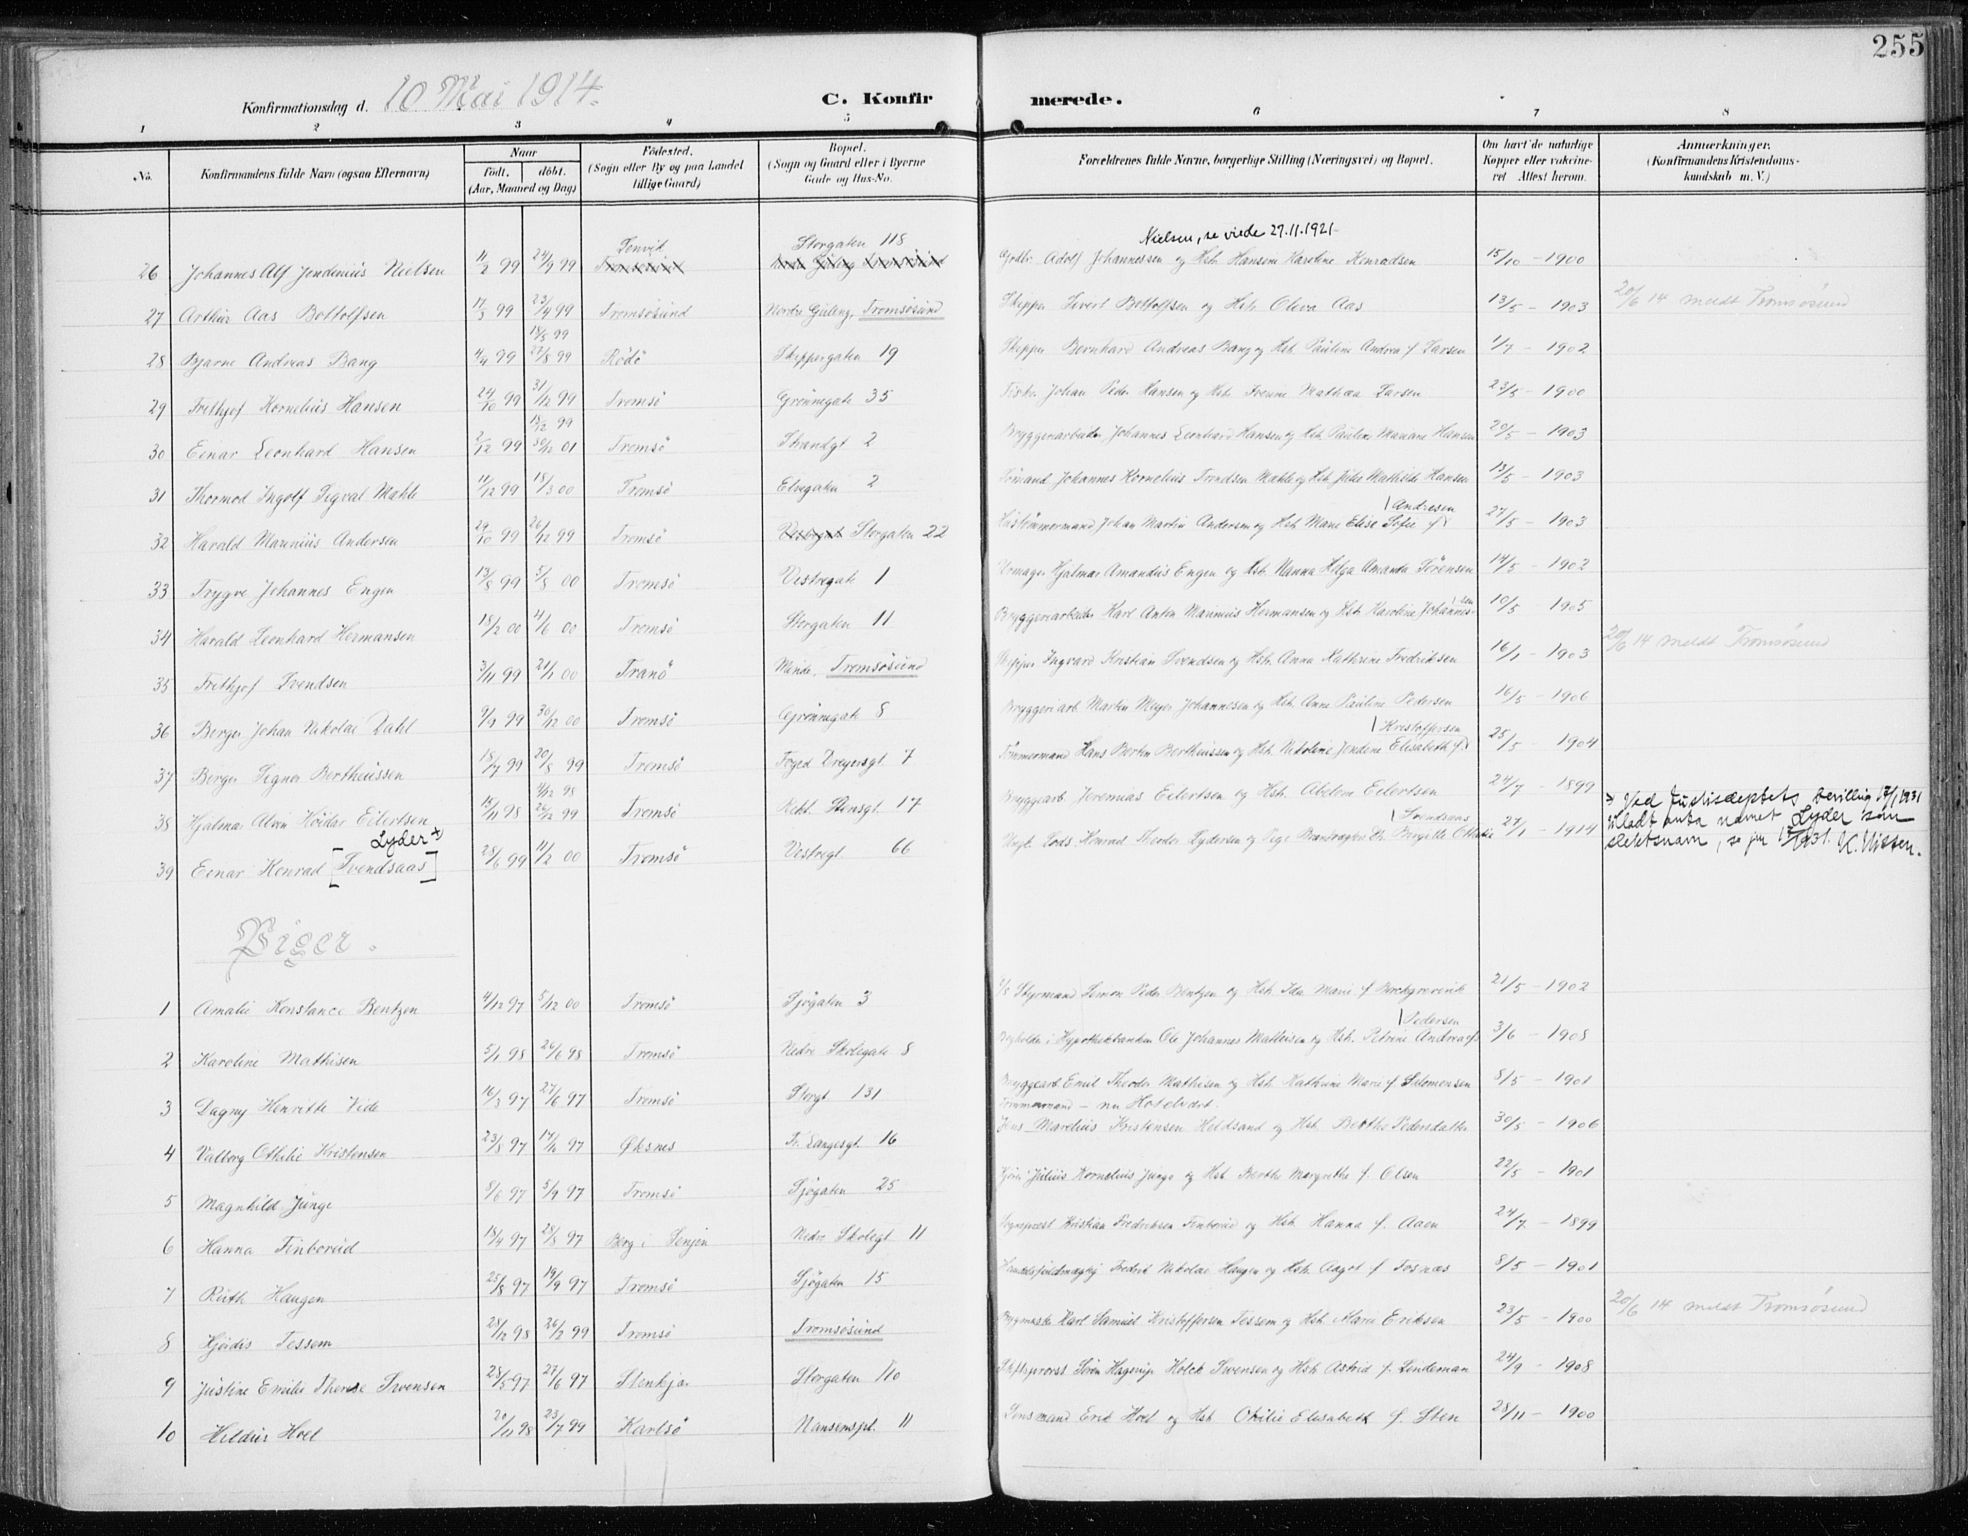 255
Konfirmationsdag d. 10 Mai 1914.
C. Konfirmerede.
1 2 3 4 5 6 7 8
No. Konfirmandens fulde Navn (ogsaa Efternavn) Naar født. døbt. (Aar, Maaned og Dag) Fødested. (Sogn eller By og paa Landet tillige Gaard) Bopæl. (Sogn og Gaard eller i Byerne Gade og Hus-No. Forældrenes fulde Navne, borgerlige Stilling (Næringsvei) og Bopæl. Om havt de naturlige Kopper eller vakcineret Attest herom. Anmærkninger. (Konfirmandens Kristendomskundskab m. V.)
Nielsen, se viede 27.11.1921
26 Johannes Alf Jendinius Nielsen 11/2 99 24/9 99 Lenvik Storgaten 118 Adolf Johannessen og Hst. Hansine Karoline Konradsen 15/10 - 1900
27 Arthur Aas Bottolfsen 17/3 99 23/9 99 Tromsøsund Nordre Gileng, Tromsøsund Skipper Sivert Bottolfsen og Hst. Oliva Aas 13/5 - 1903 20/6 14 meldt Tromsøsund
28 Bjarne Andreas Bang 4/4 99 Rødø Skippergaten 19 Skipper Bernhard Andreas Bang og Hst. Pauline Andrea f. Larsen 1/7 - 1902
29 Frithjof Kornelius Hansen 24/10 99 31/12 99 Tromsø Grønnegate 35 Fisker Johan Peder Hansen og Hst. Ivenine Mathea Larsen 23/5 - 1900
30 Einar Leonhard Hansen 2/12 99 30/12 01 Tromsø Strandgt 2 Bryggeriarbeider Johannes Leonhard Hansen og Hst. Pauline Mariane Hansen 20/5 - 1903
31 Thormod Ingolf Sigval Mæhle 11/12 99 18/3 00 Tromsø Elvegaten 2 Johannes Kornelius Trondsen Mæhle og Hst. Mathilde Hansen 13/5 - 1903
32 Harald Marinius Andersen 29/10 99 26/12 99 Tromsø Storgaten 22 Hustømmermand Johan Martin Andersen og Hst. Marie Elise Sofie f. Andresen 27/5 - 1903
33 Trygve Johannes Engen 13/8 99 5/8 00 Tromsø Vestregate 1 Urmager Hjalmar Amandus Engen og Hst. Nanna Helga Amanda Sørensen 14/5 - 1902
34 Harald Leonhard Hermansen 18/2 00 4/6 00 Tromsø Storgaten 11 Bryggeriarbeider Karl Anton Marinius Hermansen og Hst. Karoline Johannessen 10/5 - 1905
35 Frithjof Svendsen 3/11 99 21/1 00 Tranø Tromsøsund Skipper Ingvard Kristian Svendsen og Hst. Anna Kathrine Fredriksen 16/1 - 1903 20/6 14 meldt Tromsøsund
36 Berger Johan Nikolai Dahl 9/9 99 30/12 00 Tromsø Grønnegate 8 Bryggeriarb. Martin Meyer Johannesen og Hst. Anne Pauline Pedersen 16/5 - 1906
37 Berger Signor Bertheussen 18/7 99 20/8 99 Tromsø Foged Dreyersgt. 7 Tømmermand Hans Bertin Bertheussen og Hst. Nikoline Jendine Elisabeth f. Kristoffersen 25/5 - 1904
38 Hjalmar Alvin Heidar Eilertsen 15/11 98 Tromsø Rekt. Stensgt. 17 Bryggearb. Jeremias Eilertsen og Hst. Abelone Eilertsen 24/7 - 1899
Lyder +)
39 Einar Konrad [Svendsaas] 28/6 99 11/2 00 Tromsø Vestregt. 66 Konrad Theodor Lydersen og Pige Birgitte Othilie Svendsaas 27/1 - 1914
+) Ved Justisdeptets bevilling 17/1 1931 tilladt anta navnet Lyder som slektsnavn, se jnr 1931. K. Nissen.
Piger.
1 Amalie Konstance Bentzen 4/12 97 5/12 00 Tromsø Sjøgaten 3 Styrmand Simon Peder Bentzen og Hst. Ida Marie f. Borchgrevink 21/5 - 1902
2 Karoline Mathisen 5/1 98 26/6 98 Tromsø Nedre Skolegate 8 Bogholder i Hypothekbanken Ole Johannes Mathisen og Hst. Petrine Andrea f. Pedersen 3/6 - 1908
3 Dagny Henriette Vide 16/3 97 27/6 97 Tromsø Storgt 131 Bryggearb. Emil Theodor Mathisen og Hst. Kathrine Marie f. Salomonsen 8/5 - 1901
Tømmermand - nu Hotelvært.
4 Valborg Othilie Kristensen 23/5 97 Øksnes Fr. Langesgt. 16 Jens Marelius Kristensen Heldsand og Hst. Berthe Pedersdatter 30/5 - 1906
5 Magnhild Junge 8/6 97 5/9 97 Tromsø Sjøgaten 25 Julius Kornelius Junge og Hst. Berthe Margrethe f. Olsen 22/5 - 1901
6 Hanna Finborud 15/4 97 28/8 97 Berg i Senjen Nedre Skolegt 11 Sogneprest Kristian Fredriksen Finborud og Hst. Hanna f. Aaen 24/7 - 1899
7 Ruth Haugen 25/8 97 19/9 97 Tromsø Sjøgaten 15 Handelsfuldmægtig Fredrik Nikolai Haugen og Hst. Aagot f. Fosnæs 8/5 - 1901
8 Hjørdis Tessem 28/12 98 26/2 99 Tromsø Tromsøsund Bygmester Karl Samuel Kristoffersen Tessem og Hst. Marie Eriksen 23/5 - 1900 20/6 14 meldt Tromsøsund
9 Justine Emilie Therese Svensen 28/5 97 27/6 97 Stenkjær Storgaten 110 Stiftsprovst Søren Hagerup Holck Svensen og Hst. Astrid f. Lindeman 24/9 - 1908
10 Hildur Hoel 20/11 98 23/7 99 Karlsø Nansenspl. 11 Lensmand Erik Hoel og Hst. Otilie Elisabeth f. Sten 28/11 - 1900